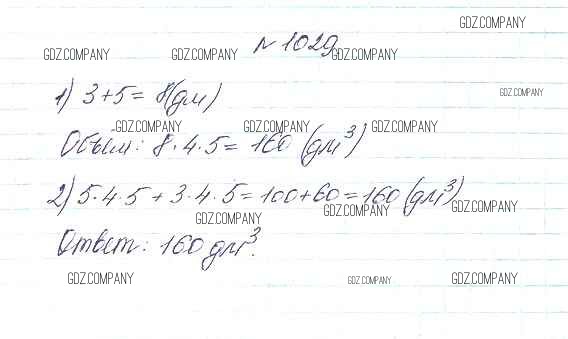 GDZ.COMPANY
№ 1029
GDZ.COMPANY GDZ.COMPANY GDZ.COMPANY
1) 3+5= 8(дм)
GDZ.COMPANY
GDZ.COMPANY GDZ.COMPANY GDZ.COMPANY
Объём: 8·4·5= 160 (дм³)
2) 5·4·5 + 3·4·5=100+60=160 (дм³)
GDZ.COMPANY GDZ.COMPANY GDZ.COMPANY
Ответ: 160 дм³.
GDZ.COMPANY GDZ.COMPANY GDZ.COMPANY